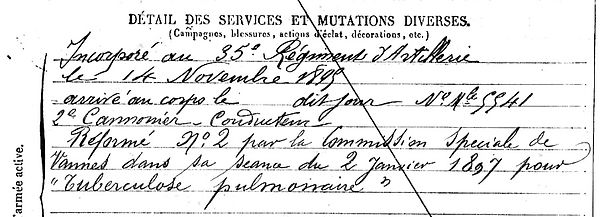 DÉTAIL DES SERVICES ET MUTATIONS DIVERSES.
(Campagnes, blessures, actions d'éclat, décorations, etc.)
Incorporé au 35e Régiment d'Artillerie
le 14 Novembre
arrivé au corps le dit jour No Mle 5541
2e Cannonier Conducteur
Réformé No 2 par la Commission Speciale de
Vannes dans sa seance du 2 Janvier 1897 pour
"Tuberculose pulmonaire"
l'armée active.